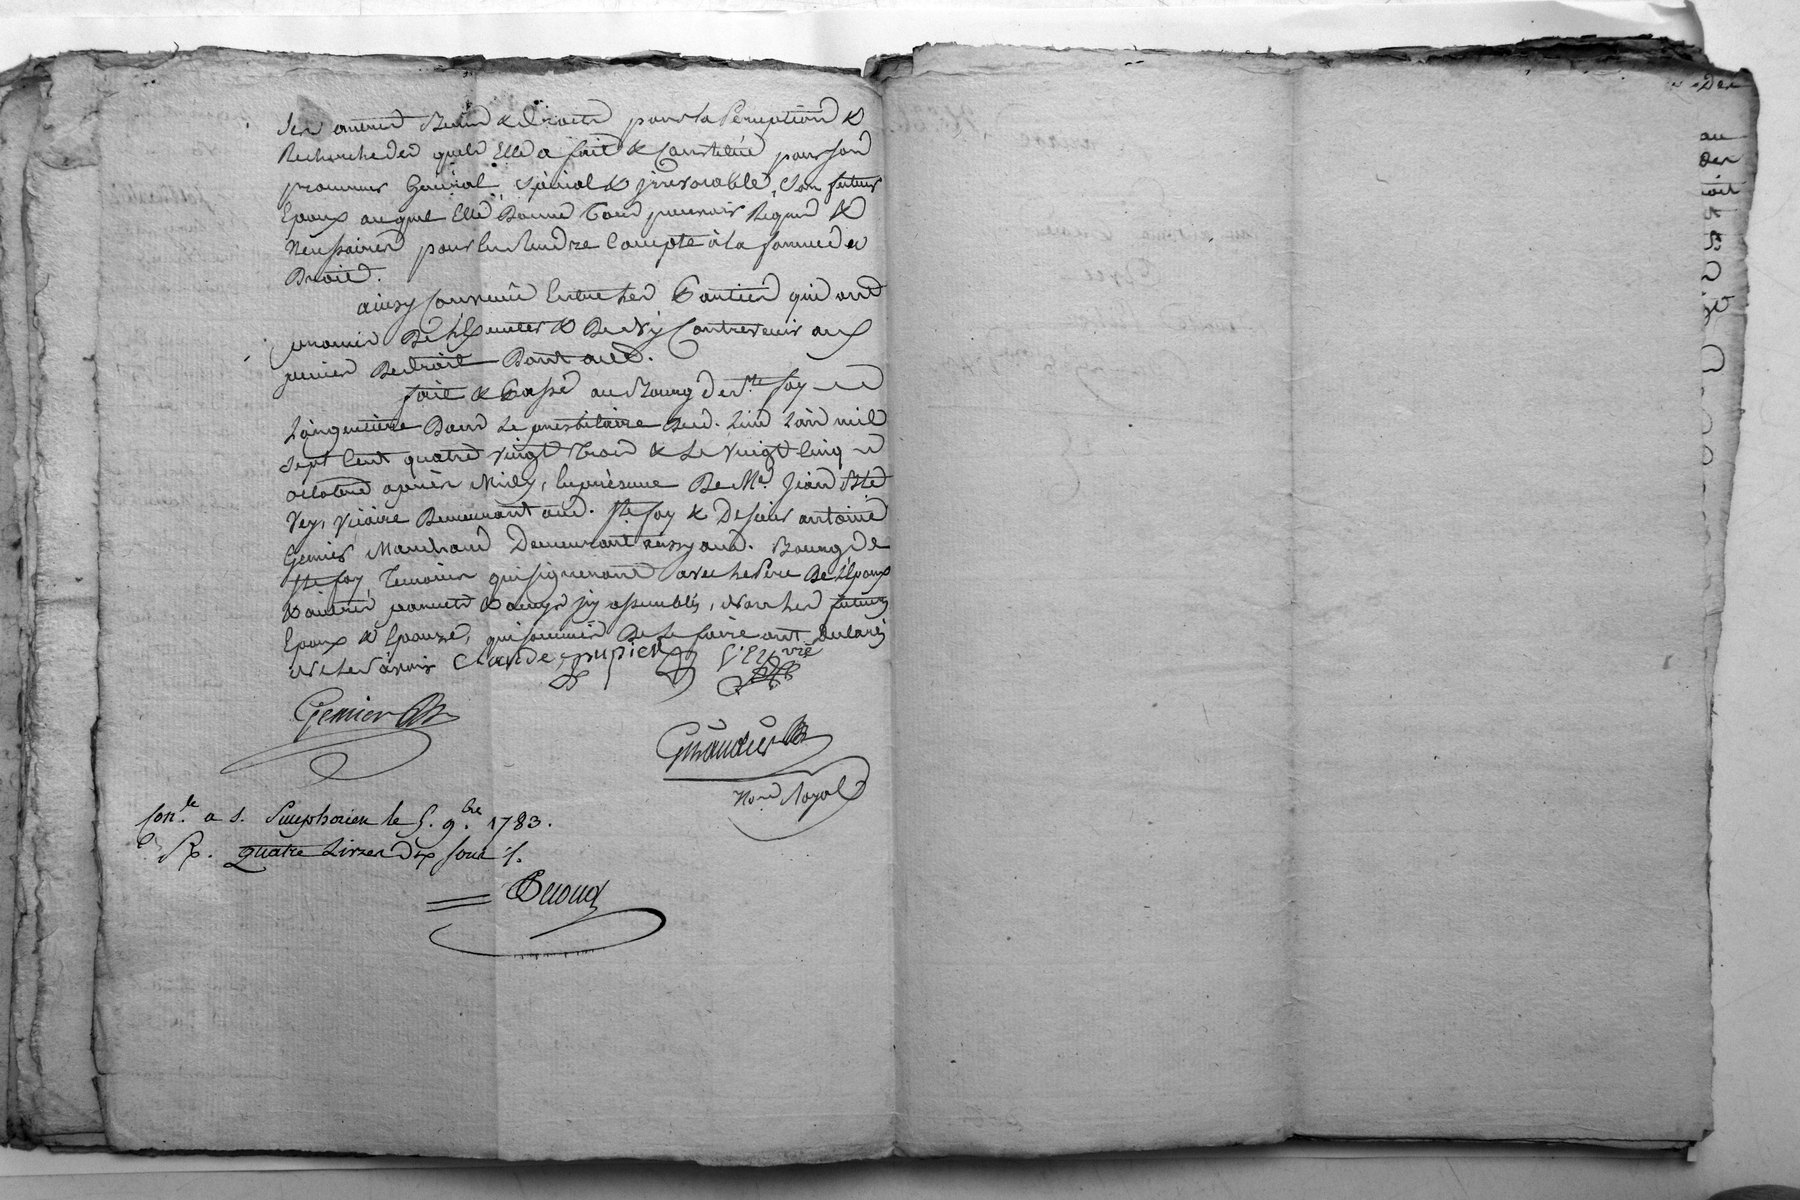 Ses autres Biens & droits pour la Perception &
Recherche des quels Elle a fait & Constitué pour son
procureur General, Spécial & jrrevocable, Son futur
Epoux auquel Elle Donne tous pouvoirs Requis &
Necessaires pour En Rendre Compte à la forme du
Droit.
ainsy Convenu Entre les Parties qui ont
promis De l'Executer & De N'y Contrevenir aux
peines De droit Dont acte.
fait & Passé au Bourg de Ste foy
L'argentiere Dans Le presbitaire dud. Lieu L'an mil
Sept Cent quatre vingt trois & Le Vingt Cinq
octobre après Midy, En présence De Me. Jean Bte
Vey, Vicaire Demeurant aud. Ste foy & De Sieur antoine
Gemier Marchand Demeurant aussy aud. Bourg de
Ste foy, Temoins qui signeront avec Le Père De l'Epoux
& autres parents & amys jcy assemblés, Non Les futurs
Epoux & Epouze, qui sommés De Le faire ont Declarés
Ne Le Sçavoir Claude pupier
Gemier
Giraudier
Nore. Royal
Con.le a S. Simphorien le 5. 9.bre 1783.
R. quatre Livres dix sous